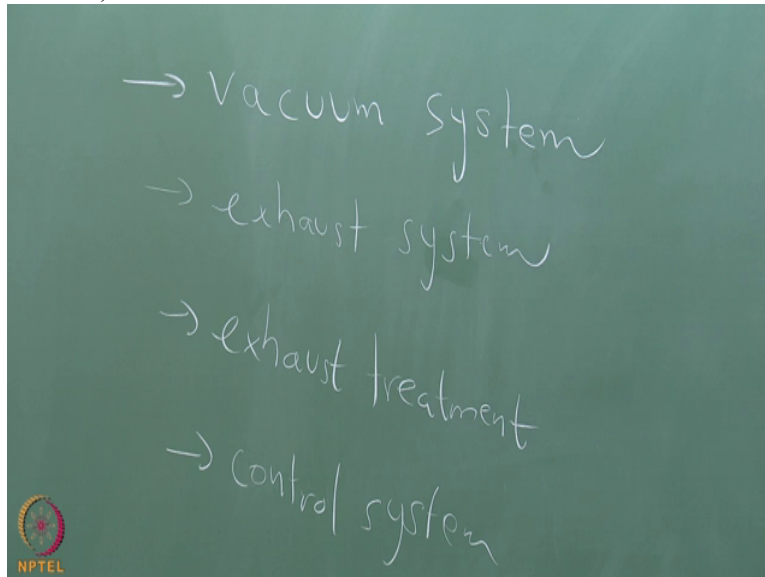 → Vacuum system
→ exhaust system
→ exhaust treatment
→ control system
NPTEL